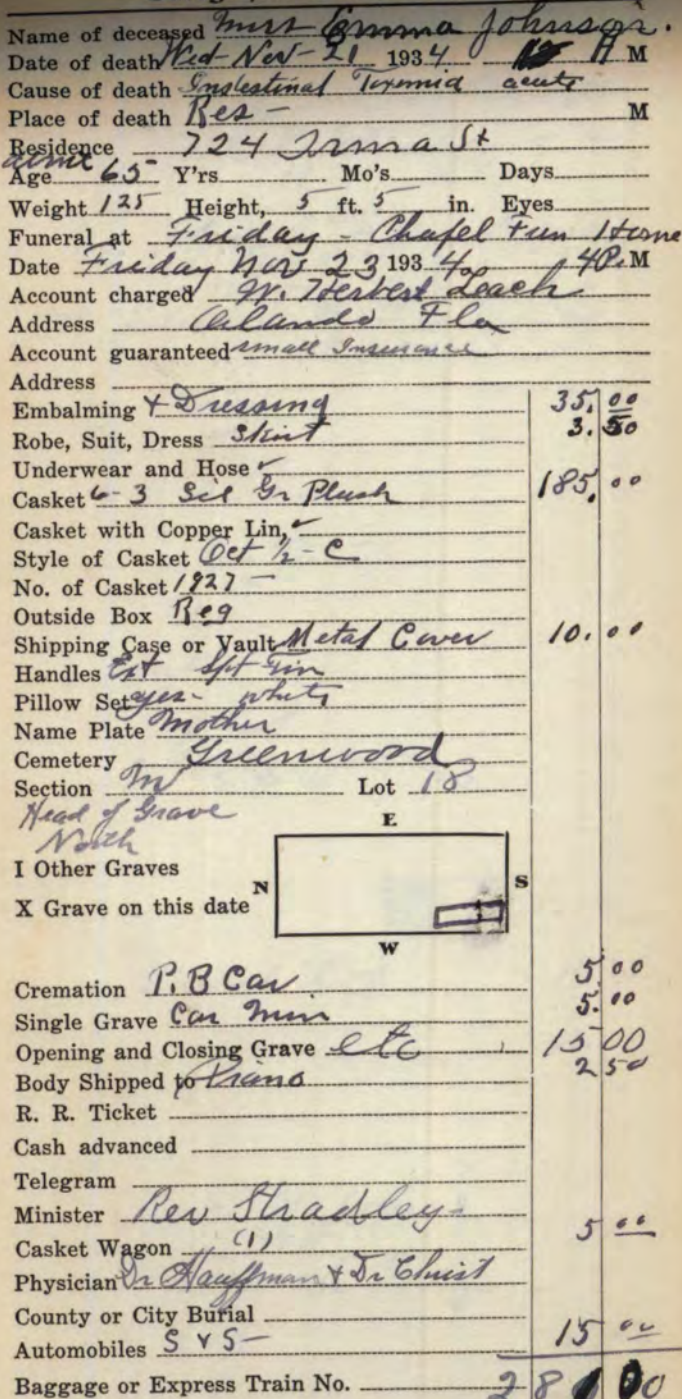 Name of deceased Mrs Emma Johnson.
Date of death Wed Nov-21 1934 M
Cause of death Intestinal acute
Place of death Res - M
Residence 724 Irma St
Age 65 Y'rs Mo's Days
Weight 125 Height, 5 ft. 5 in. Eyes
Funeral at Friday - Chapel Fun Home
Date Friday Nov 23 1934 4 P.M
Account charged W. Herbert Leach
Address Orlando Fla
Account guaranteed small Insurance
Address
Embalming + Dressing 35.00
Robe, Suit, Dress 3.50
Underwear and Hose ✓
Casket 6-3 Sil Gr Plush 185.00
Casket with Copper Lin, ✓
Style of Casket Oct 1/2 - C
No. of Casket 1927 -
Outside Box Reg
Shipping Case or Vault Metal Cover 10.00
Handles Ext
Pillow Set yes - white
Name Plate Mother
Cemetery Greenwood
Section M Lot 18
Head of Grave
North
E
I Other Graves
N S
X Grave on this date
W
Cremation P.B Car 5 00
Single Grave Car Min 5.00
Opening and Closing Grave etc 15 00
Body Shipped to Piano 2 50
R. R. Ticket
Cash advanced
Telegram
Minister Rev Stradley 5 00
Casket Wagon (1)
Physician Dr Hauffman + Dr Christ
County or City Burial
Automobiles S & S - 15 00
Baggage or Express Train No.